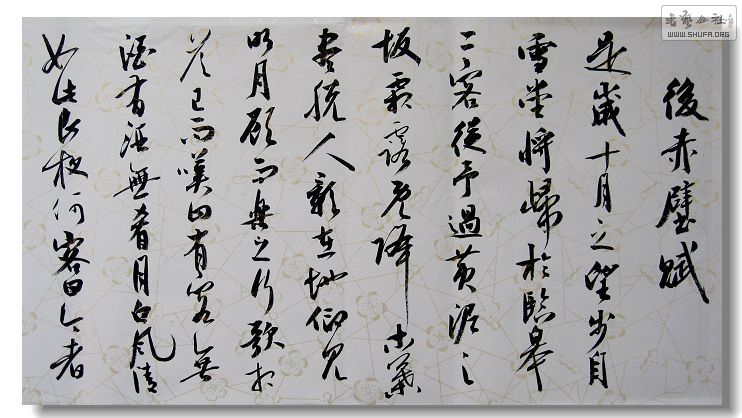 後赤壁賦
是歲十月之望步自
雪堂將歸於臨皋
二客從予過黃泥之
坂霜露既降木葉
盡脫人影在地仰見
明月顧而樂之行歌相
答已而嘆曰有客無
酒有酒無肴月白風清
如此良夜何客曰今者
书艺公社
WWW.SHUFA.ORG